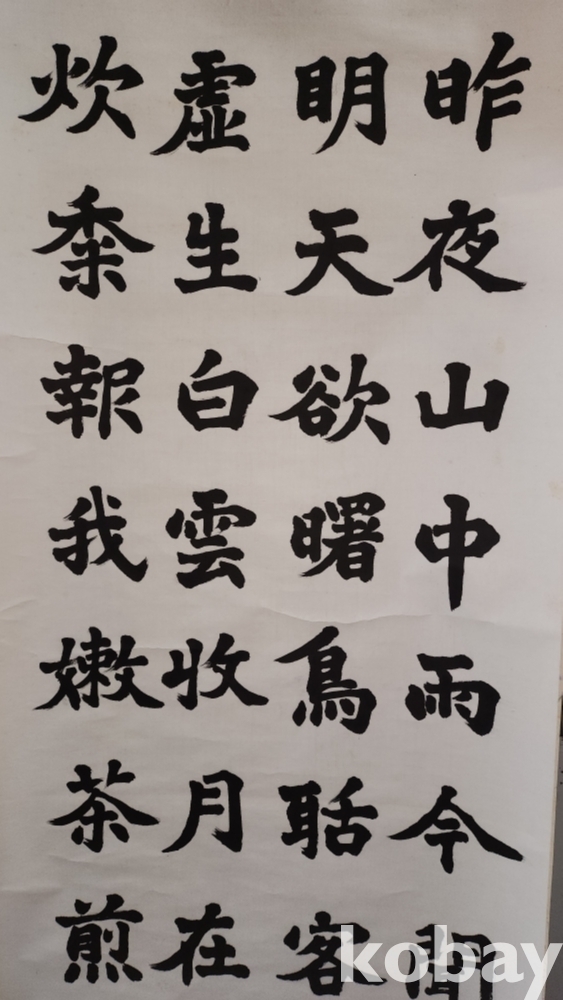 昨夜山中雨今聞
明天欲曙鳥聒客
虛生白雲收月在
炊黍報我嫩茶煎
kobay